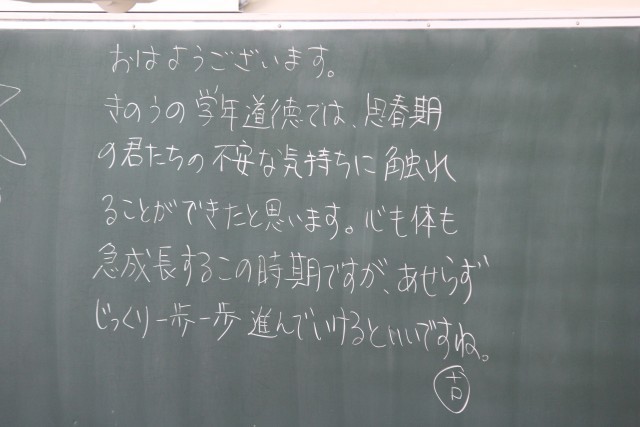 おはようございます。
きのうの学年道徳では、思春期
の君たちの不安な気持ちに触れ
ることができたと思います。心も体も
急成長するこの時期ですが、あせらず
じっくり一歩一歩進んでいけるといいですね。
吉